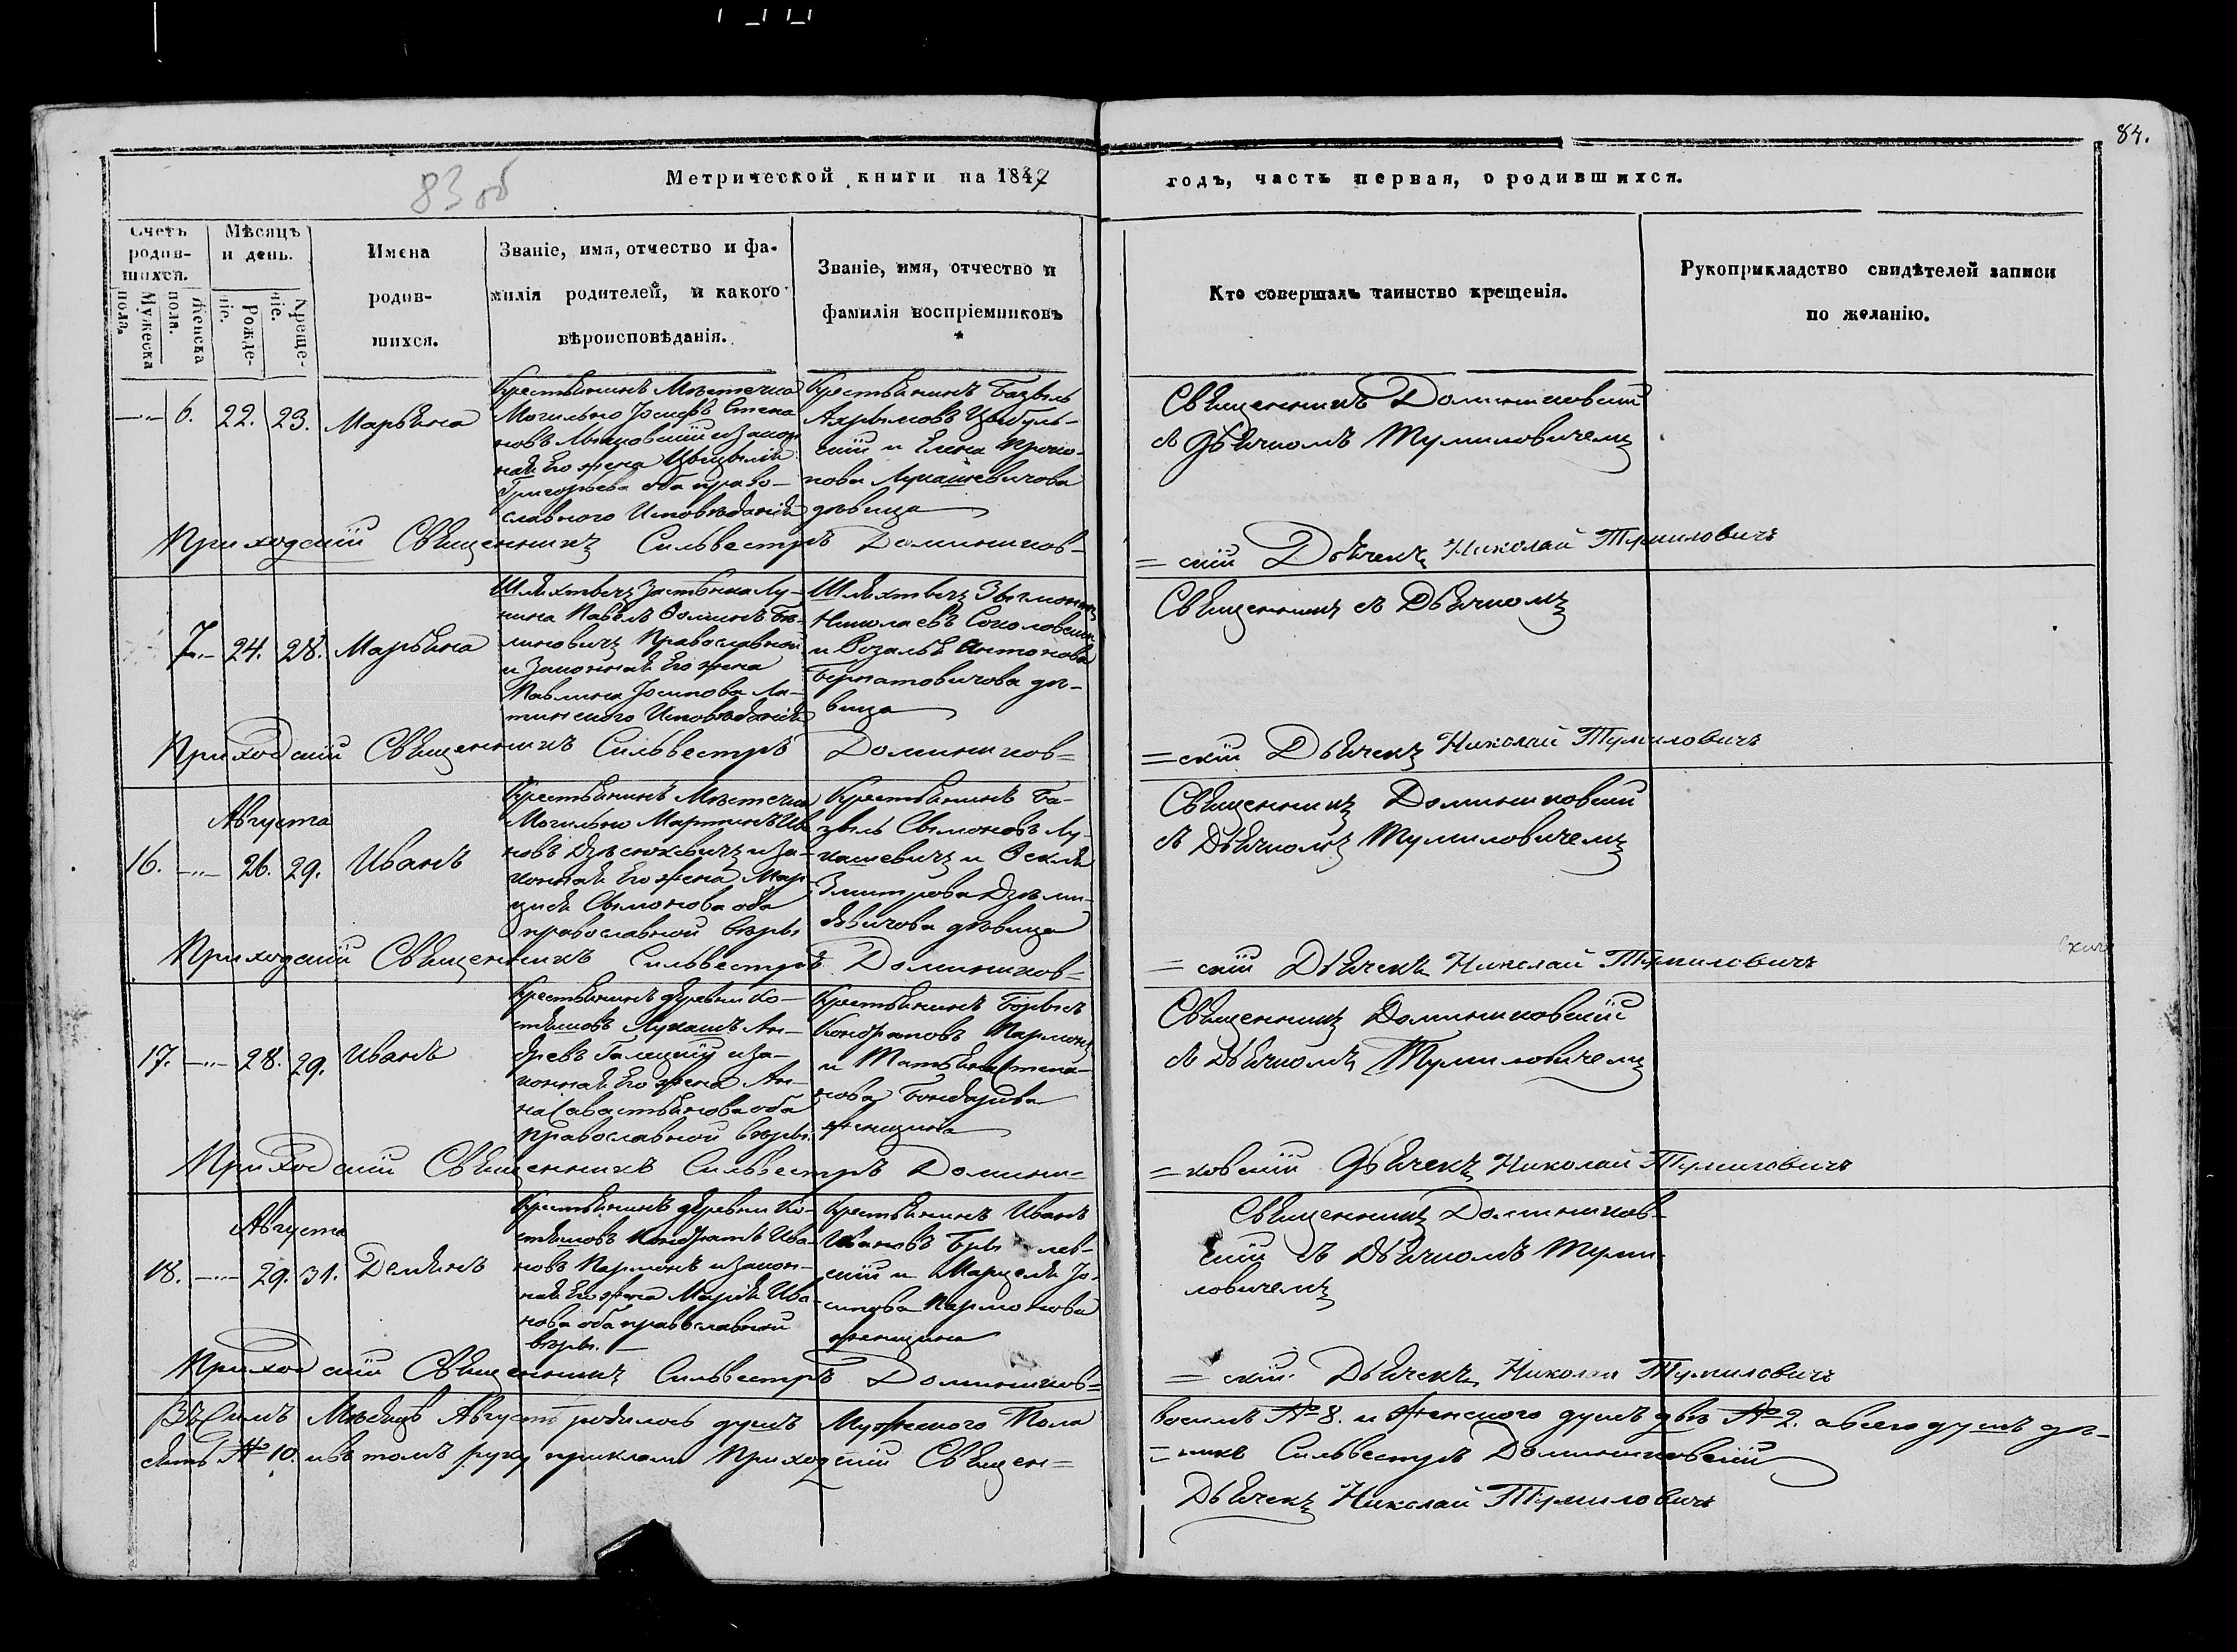 84.
83 об
Метрической книги на 1847
годъ, часть первая, о родившихся.
Счетъ родив-
шихся.
Мужеска пола.
Женска пола.
Мѣсяцъ
и день.
Рожде-
ніе.
Креще-
ніе.
Имена
родив-
шихся.
Званіе, имя, отчество и фа-
милія родителей, и какого
вѣроисповѣданія.
Званіе, имя, отчество и
фамилія воспріемниковъ
Кто совершалъ таинство крещенія.
Рукоприкладство свидѣтелей записи
по желанію.
6. 22. 23. Марьяна
Крестьянинъ Мѣстечка
Могильно Іосифъ Степа
новъ и закон
ная Его жена
Григорьева оба право-
славного Исповѣданія
Крестьянинъ Базыль
Цыбуль-
скій и Елена Проко-
пова Лукашевичова
дѣвица
Священникъ Доминиковскій
съ Дьячкомъ Тумиловичемъ
Приходскій Священникъ Сильвестръ Домиников-
=скій Дьячекъ Николай Тумиловичъ
7. 24. 28. Марьяна
Шляхтичъ Застѣнка Лу-
нина Павелъ Фоминъ
линовичъ Православной
и Законная Его жена
Павлина Іосипова Ла-
тинского Исповѣданія
Шляхтичъ
Николаевъ Соколовскій
и Розалія Антонова
Бернатовичова дѣ-
вица
Священникъ съ Дьячкомъ
Приходскій Священникъ Сильвестръ Домиников=
=скій Дьячекъ Николай Тумиловичъ
Августа
16. 26. 29. Иванъ
Крестьянинъ Мѣстечка
Могильно Мартинъ Ива
новъ и за-
конная Его жена Мар
циля Сымонова оба
православной вѣры
Крестьянинъ Ба-
зыль Сымоновъ Лу-
кашевичъ и Текля
Змитрова
дѣвица
Священникъ Доминиковскій
съ Дьячкомъ Тумиловичемъ
Приходскій Священникъ Сильвестръ Домиников=
=скій Дьячекъ Николай Тумиловичъ
17. 28. 29. Иванъ
Крестьянинъ деревни Ко-
стяшовъ Лукашъ Ан-
дреевъ Галицкій и за-
конная Его жена Ан-
на Савастьянова оба
православной вѣры.
Крестьянинъ Борысъ
Кондратовъ Пармонъ
и Татьяна Степа-
нова Бондарова
женщина
Священникъ Доминиковскій
съ Дьячкомъ Тумиловичемъ
Приходскій Священникъ Сильвестръ Домини=
=ковскій Дьячекъ Николай Тумиловичъ
Августа
18. 29. 31. Демянъ
Крестьянинъ деревни Ко-
стяшовъ Кондратъ Ива-
новъ Пармонъ и закон-
ная Его жена Марія Ива-
нова оба православной
вѣры.
Крестьянинъ Иванъ
Ивановъ
скій и Марцеля Іо-
сипова Пармонова
женщина
Священникъ Домиников-
скій съ Дьячкомъ Туми-
ловичемъ
Приходскій Священникъ Сильвестръ Домиников=
=скій Дьячекъ Николай Тумиловичъ
Въ семъ Мѣсяцѣ Августѣ родилось душъ Мужеского Пола
восемъ № 8. и Женского душъ двѣ № 2. а всего душъ де-
сять № 10. и въ томъ руку приклали Приходскій Священ=
=никъ Сильвестръ Доминиковскій
Дьячекъ Николай Тумиловичъ